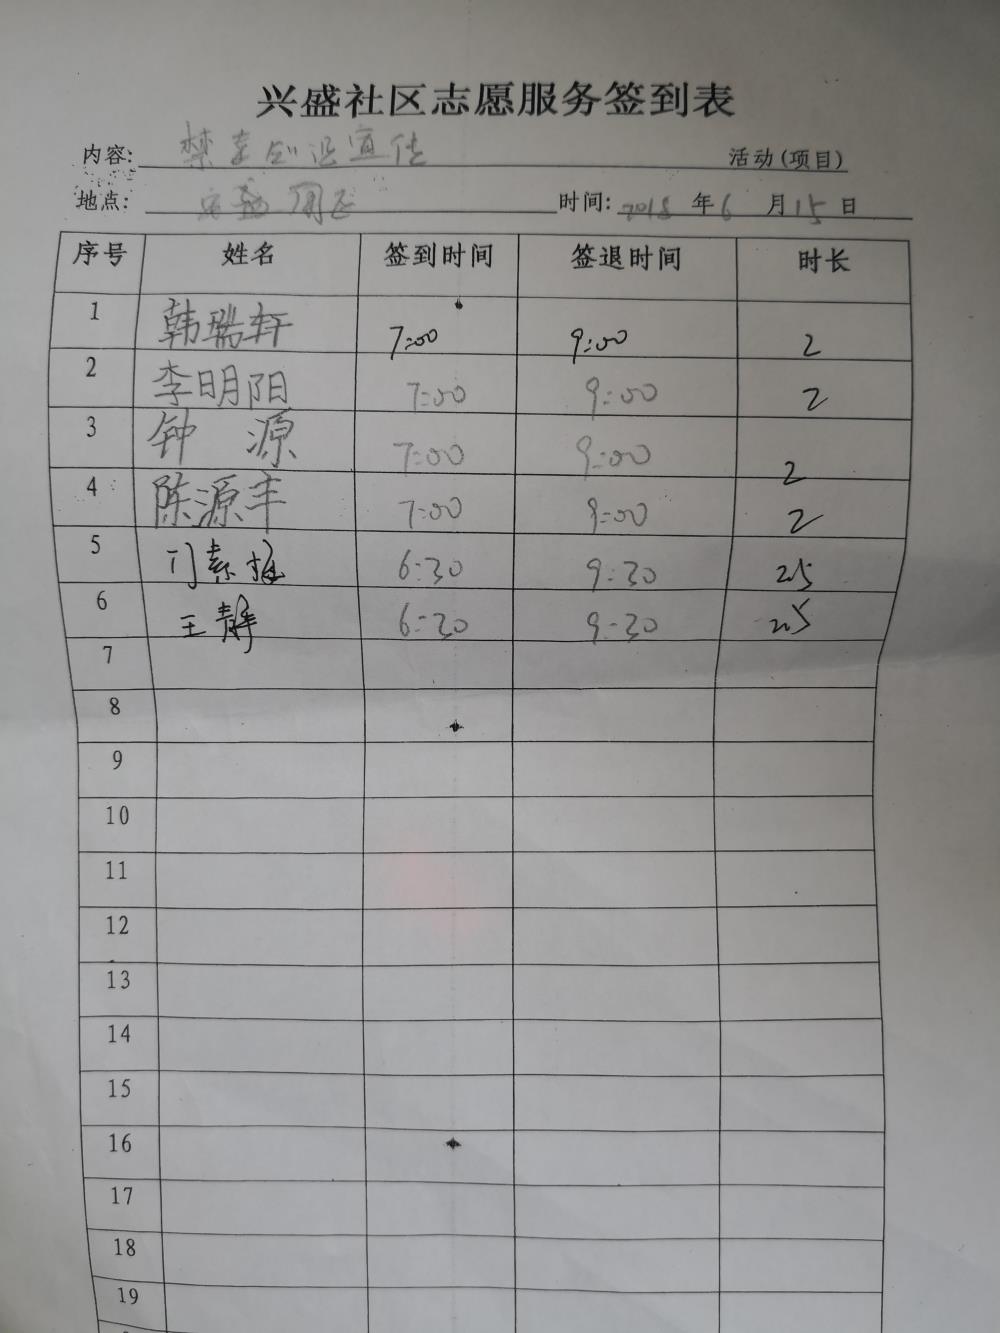 兴盛社区志愿服务签到表
内容: 宣传 活动(项目)
地点: 时间: 2018 年 6 月 15 日
序号 姓名 签到时间 签退时间 时长
1 韩瑞轩 7:00 9:00 2
2 李明阳 7:00 9:00 2
3 钟源 7:00 9:00 2
4 陈源丰 7:00 9:00 2
5 6:30 9:30 2.5
6 王静 6:30 9:30 2.5
7
8
9
10
11
12
13
14
15
16
17
18
19